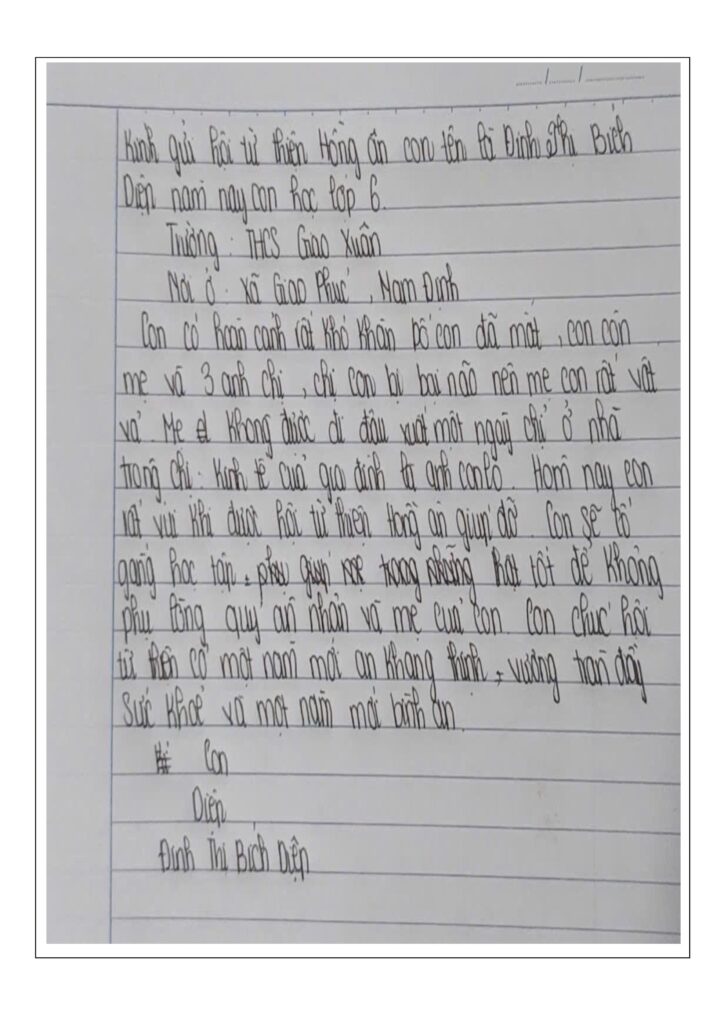 Kính gửi hội từ thiện Hồng ân con tên là Đinh Thị Bích
Diện năm nay con học lớp 6.
Trường : THCS Giao Xuân
Nơi ở : xã Giao Phúc , Nam Định
Con có hoàn cảnh rất khó khăn bố con đã mất , con còn
mẹ và 3 anh chị , chị con bị bại não nên mẹ con rất vất
vả . Mẹ không được đi đâu xuất một ngày chỉ ở nhà
trông chị . Kinh tế của gia đình là anh con lo . Hôm nay con
rất vui khi được hội từ thiện Hồng ân giúp đỡ . Con sẽ cố
gắng học tập tốt để không
phụ lòng quý ân nhân và mẹ của con . Con chúc hội
từ thiện có một năm mới an khang thịnh , vượng tràn đầy
sức khoẻ và một năm mới bình an .
Con
Diện
Đinh Thị Bích Diện